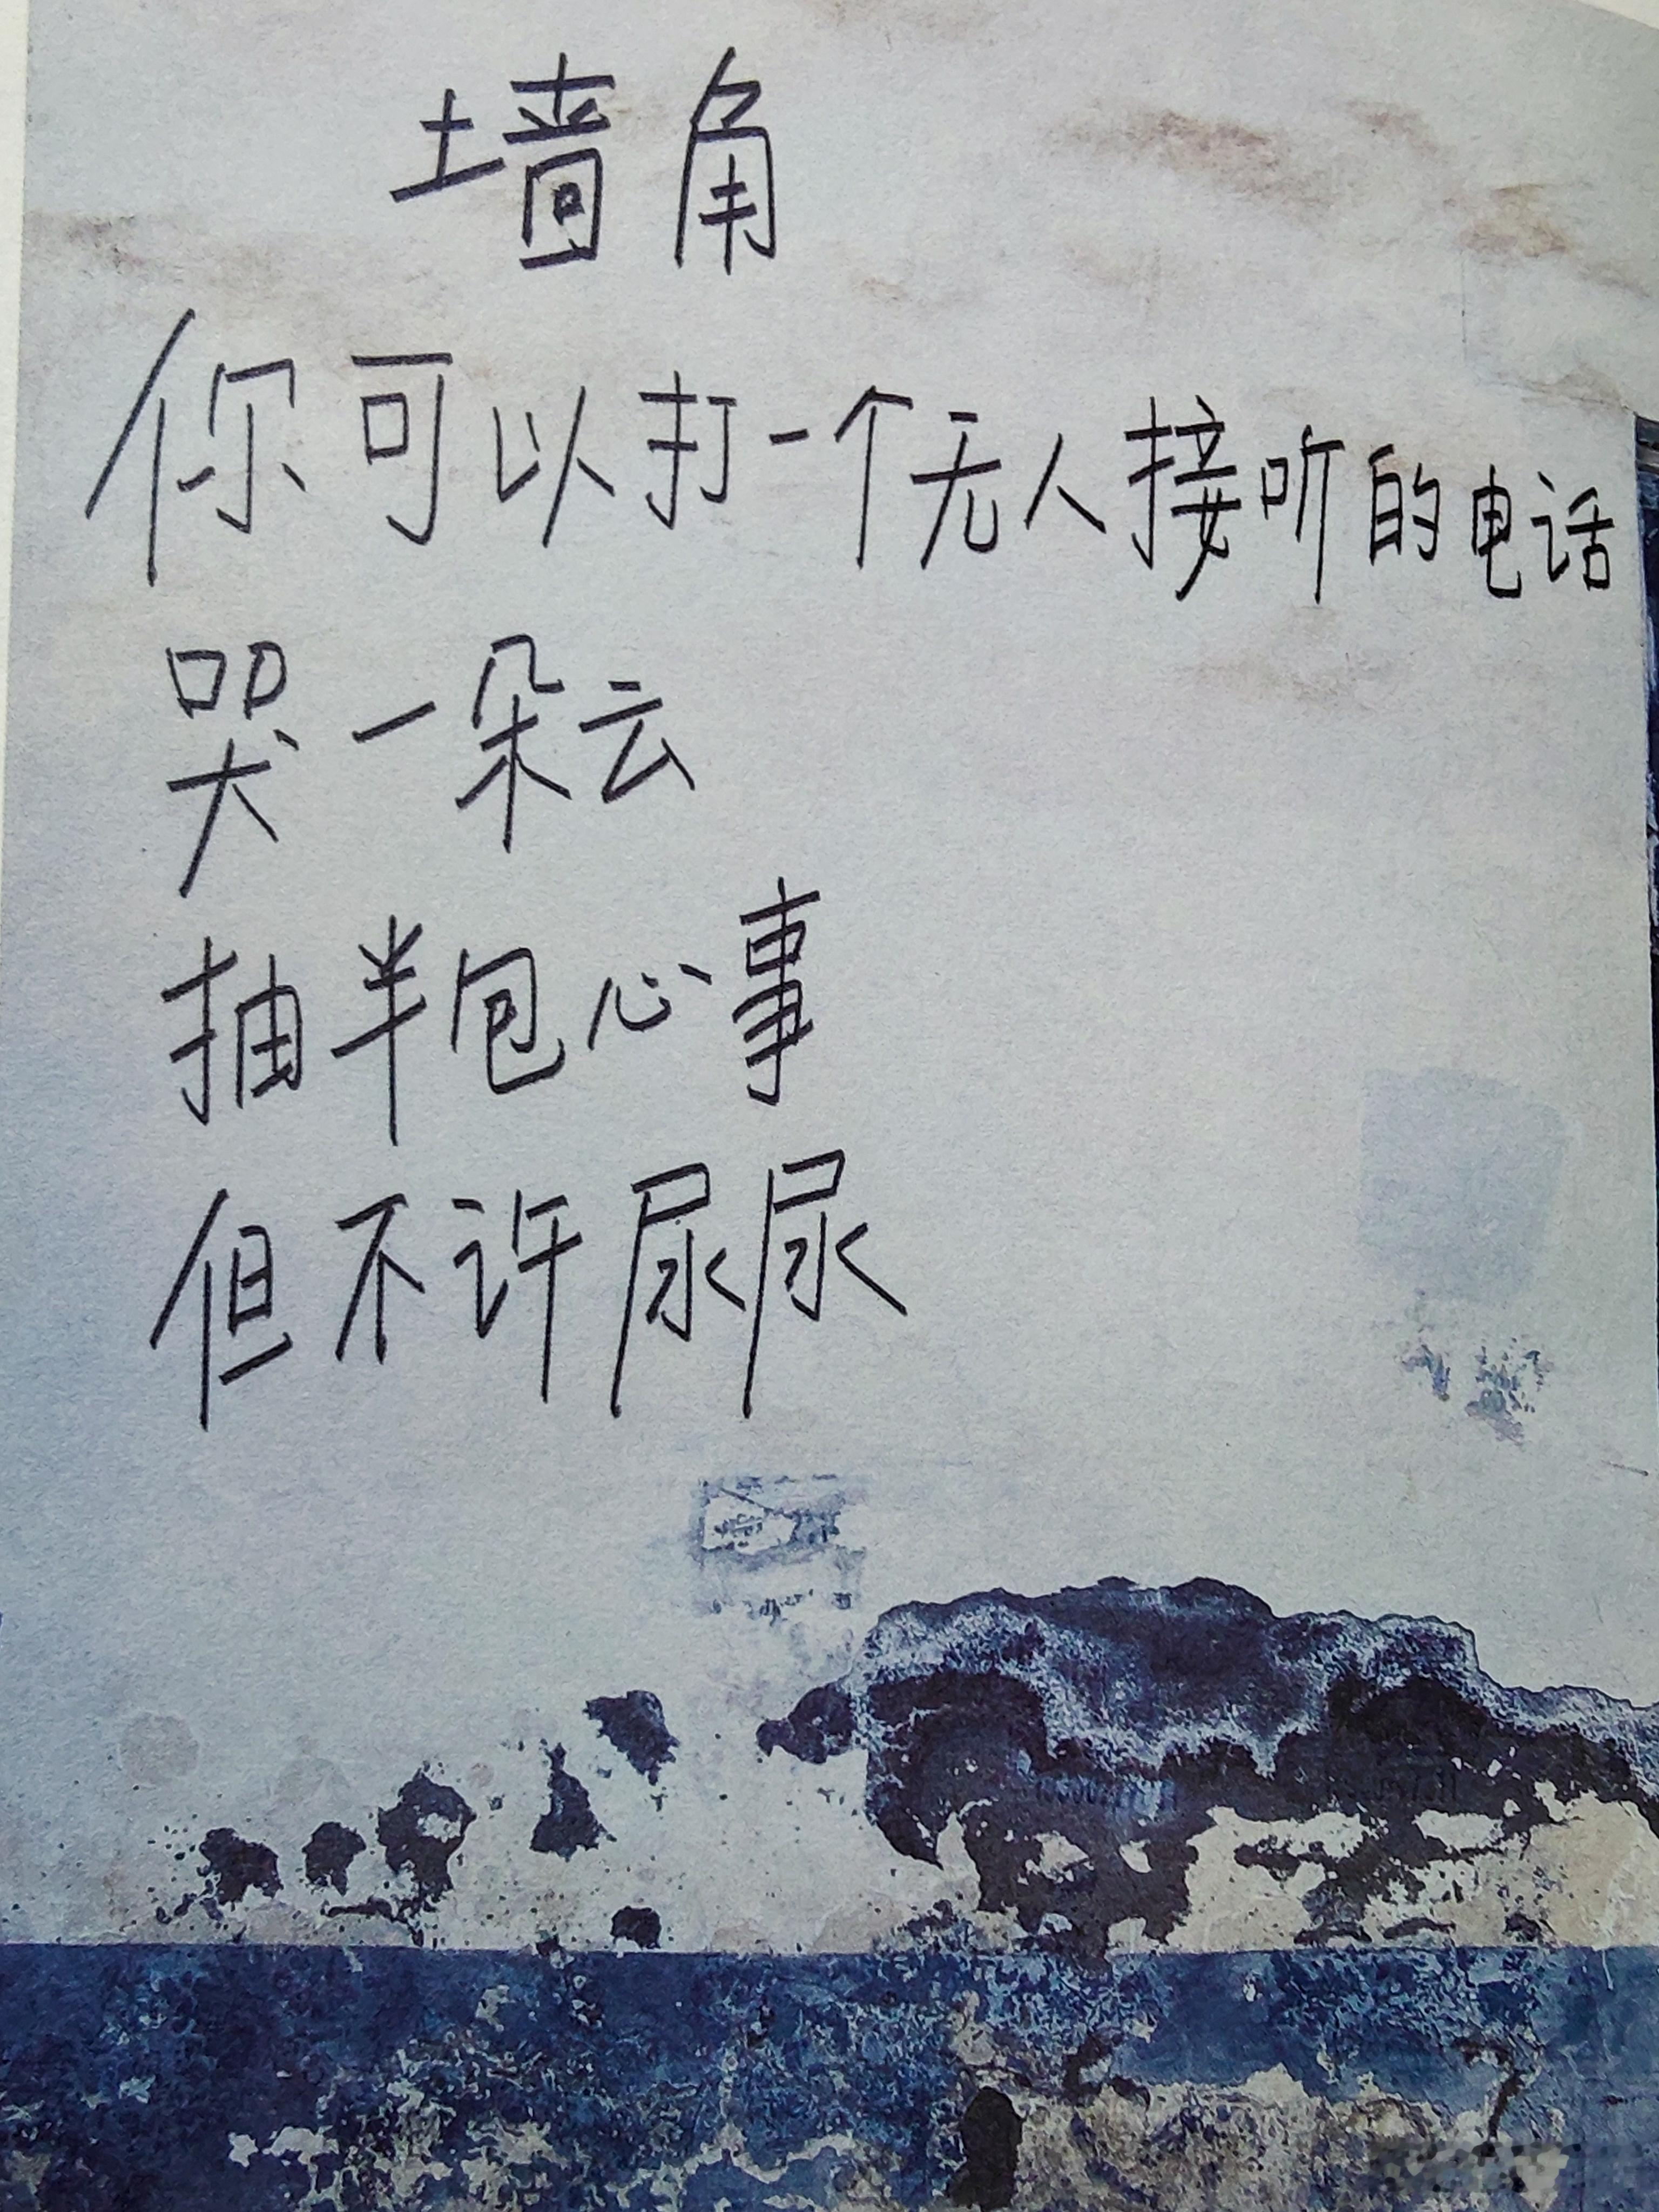 墙角
你可以打一个无人接听的电话
哭一朵云
抽半包心事
但不许尿尿